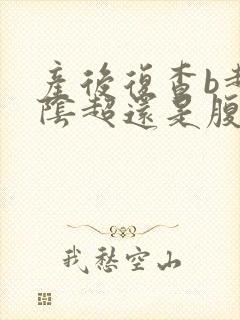 產後復查b超
陰超還是腹
我愁空山